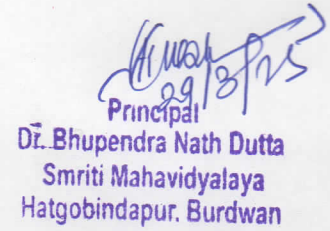 29/3/25
Principal
Dr. Bhupendra Nath Dutta
Smriti Mahavidyalaya
Hatgobindapur. Burdwan